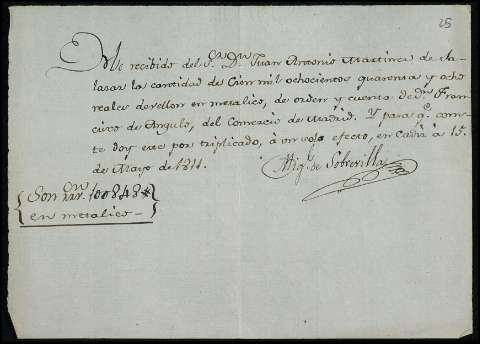 25
He recibido del S.or D.n Juan Antonio Martinez de Sa-
lasar la cantidad de Cien mil ochocientos quarenta y ocho
reales de vellon en metalico, de orden y cuenta de D.n Fran-
cisco de Angulo, del Comercio de Madrid. Y para q.e cons-
te doy este por triplicado, à un solo efecto, en Cadiz à 15
de Mayo de 1811.
Mig.l de Sobrevilla
Son 100848
en metalico